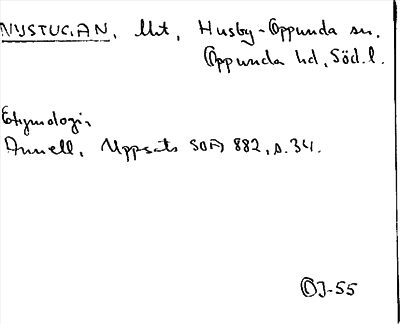 NYSTUGAN, Utt, Husby-Oppunda sn,
Oppunda hd, Södl.
Etymologi,
Annell, Uppsats SOA 882, s. 34.
OJ-55